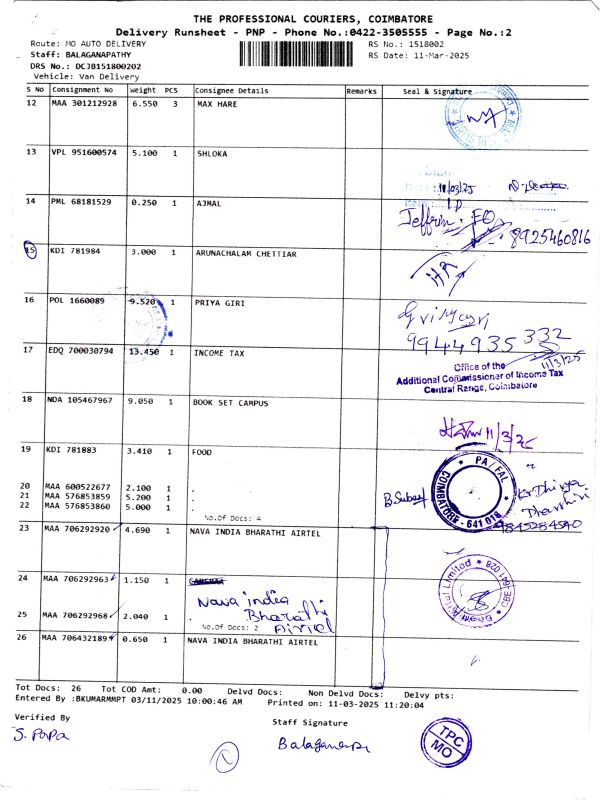 THE PROFESSIONAL COURIERS, COIMBATORE
Delivery Runsheet - PNP - Phone No.:0422-3505555 - Page No.:2
Route: MO AUTO DELIVERY
RS No.: 1518002
Staff: BALAGANAPATHY
RS Date: 11-Mar-2025
DRS No.: DCJB151800202
Vehicle: Van Delivery
S No Consignment No Weight PCS Consignee Details Remarks Seal & Signature
12 MAA 301212928 6.550 3 MAX HARE
13 VPL 951600574 5.100 1 SHLOKA
11/03/25
14 PML 68181529 0.250 1 AJMAL
Jeffrin. FO
8925460816
15 KDI 781984 3.000 1 ARUNACHALAM CHETTIAR
16 POL 1660089 9.520 1 PRIYA GIRI
9944935332
17 EDQ 700030794 13.450 1 INCOME TAX
11/3/25
Office of the
Additional Commissioner of Income Tax
Central Range, Coimbatore
18 NDA 105467967 9.050 1 BOOK SET CAMPUS
19 KDI 781883 3.410 1 FOOD
COIMBATORE - 641 018
20 MAA 600522677 2.100 1 .
21 MAA 576853859 5.200 1 .
22 MAA 576853860 5.000 1 .
No.Of Docs: 4
23 MAA 706292920 4.690 1 NAVA INDIA BHARATHI AIRTEL
24 MAA 706292963 1.150 1
Nava india
Bharathi
Airtel
25 MAA 706292968 2.040 1 .
No.Of Docs: 2
26 MAA 706432189 0.650 1 NAVA INDIA BHARATHI AIRTEL
Tot Docs: 26 Tot COD Amt: 0.00 Delvd Docs: Non Delvd Docs: Delvy pts:
Entered By :BKUMARMMPT 03/11/2025 10:00:46 AM Printed on: 11-03-2025 11:20:04
Verified By
Staff Signature
S. Papa
TPC
MO